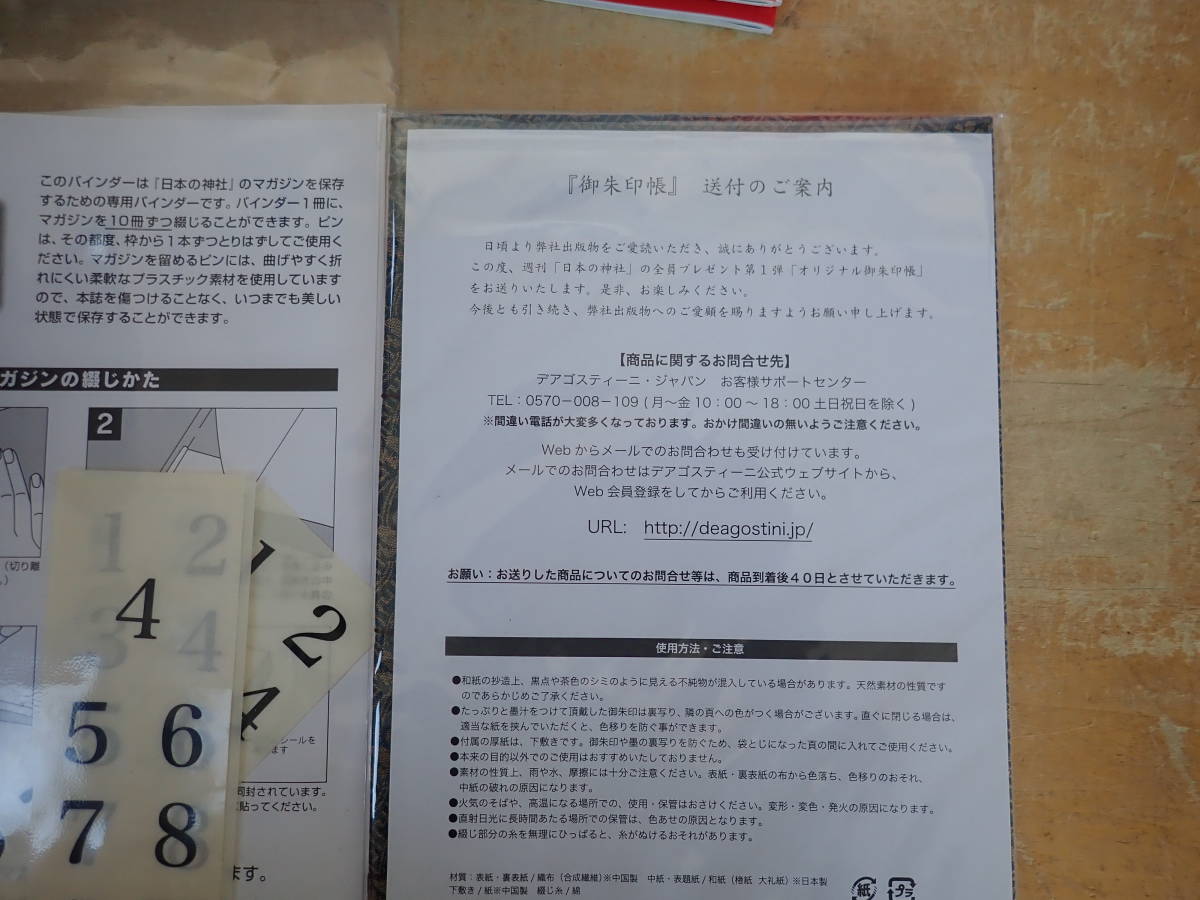 このバインダーは『日本の神社』のマガジンを保存
するための専用バインダーです。バインダー1冊に、
マガジンを10冊ずつ綴じることができます。ピン
は、その都度、枠から1本ずつとりはずしてご使用く
ださい。マガジンを留めるピンには、曲げやすく折
れにくい柔軟なプラスチック素材を使用しています
ので、本誌を傷つけることなく、いつまでも美しい
状態で保存することができます。
ガジンの綴じかた
2
(切り離
1 2
4
3 4
5 6
7 8
1
2
4
シールを
ます
同封されています。
貼ってください。
ます。
『御朱印帳』 送付のご案内
日頃より弊社出版物をご愛読いただき、誠にありがとうございます。
この度、週刊「日本の神社」の全員プレゼント第1弾「オリジナル御朱印帳」
をお送りいたします。是非、お楽しみください。
今後とも引き続き、弊社出版物へのご愛顧を賜りますようお願い申し上げます。
【商品に関するお問合せ先】
デアゴスティーニ・ジャパン お客様サポートセンター
TEL:0570-008-109 (月〜金10:00〜18:00土日祝日を除く)
※間違い電話が大変多くなっております。おかけ間違いの無いようご注意ください。
Webからメールでのお問合わせも受け付けています。
メールでのお問合わせはデアゴスティーニ公式ウェブサイトから、
Web会員登録をしてからご利用ください。
URL: http://deagostini.jp/
お願い:お送りした商品についてのお問合せ等は、商品到着後40日とさせていただきます。
使用方法・ご注意
●和紙の抄造上、黒点や茶色のシミのように見える不純物が混入している場合があります。天然素材の性質です
のであらかじめご了承ください。
●たっぷりと墨汁をつけて頂戴した御朱印は裏写り、隣の頁への色がつく場合がございます。直ぐに閉じる場合は、
適当な紙を挟んでいただくと、色移りを防ぐ事ができます。
●付属の厚紙は、下敷きです。御朱印や墨の裏写りを防ぐため、袋とじになった頁の間に入れてご使用ください。
●本来の目的以外でのご使用はおすすめいたしておりません。
●素材の性質上、雨や水、摩擦には十分ご注意ください。表紙・裏表紙の布から色落ち、色移りのおそれ、
中紙の破れの原因になります。
●火気のそばや、高温になる場所での、使用・保管はおさけください。変形・変色・発火の原因になります。
●直射日光に長時間あたる場所での保管は、色あせの原因となります。
●綴じ部分の糸を無理にひっぱると、糸がぬけるおそれがあります。
材質:表紙・裏表紙/織布(合成繊維)※中国製 中紙・表題紙/和紙(楮紙 大礼紙)※日本製
下敷き/紙※中国製 綴じ糸/綿
紙 プラ